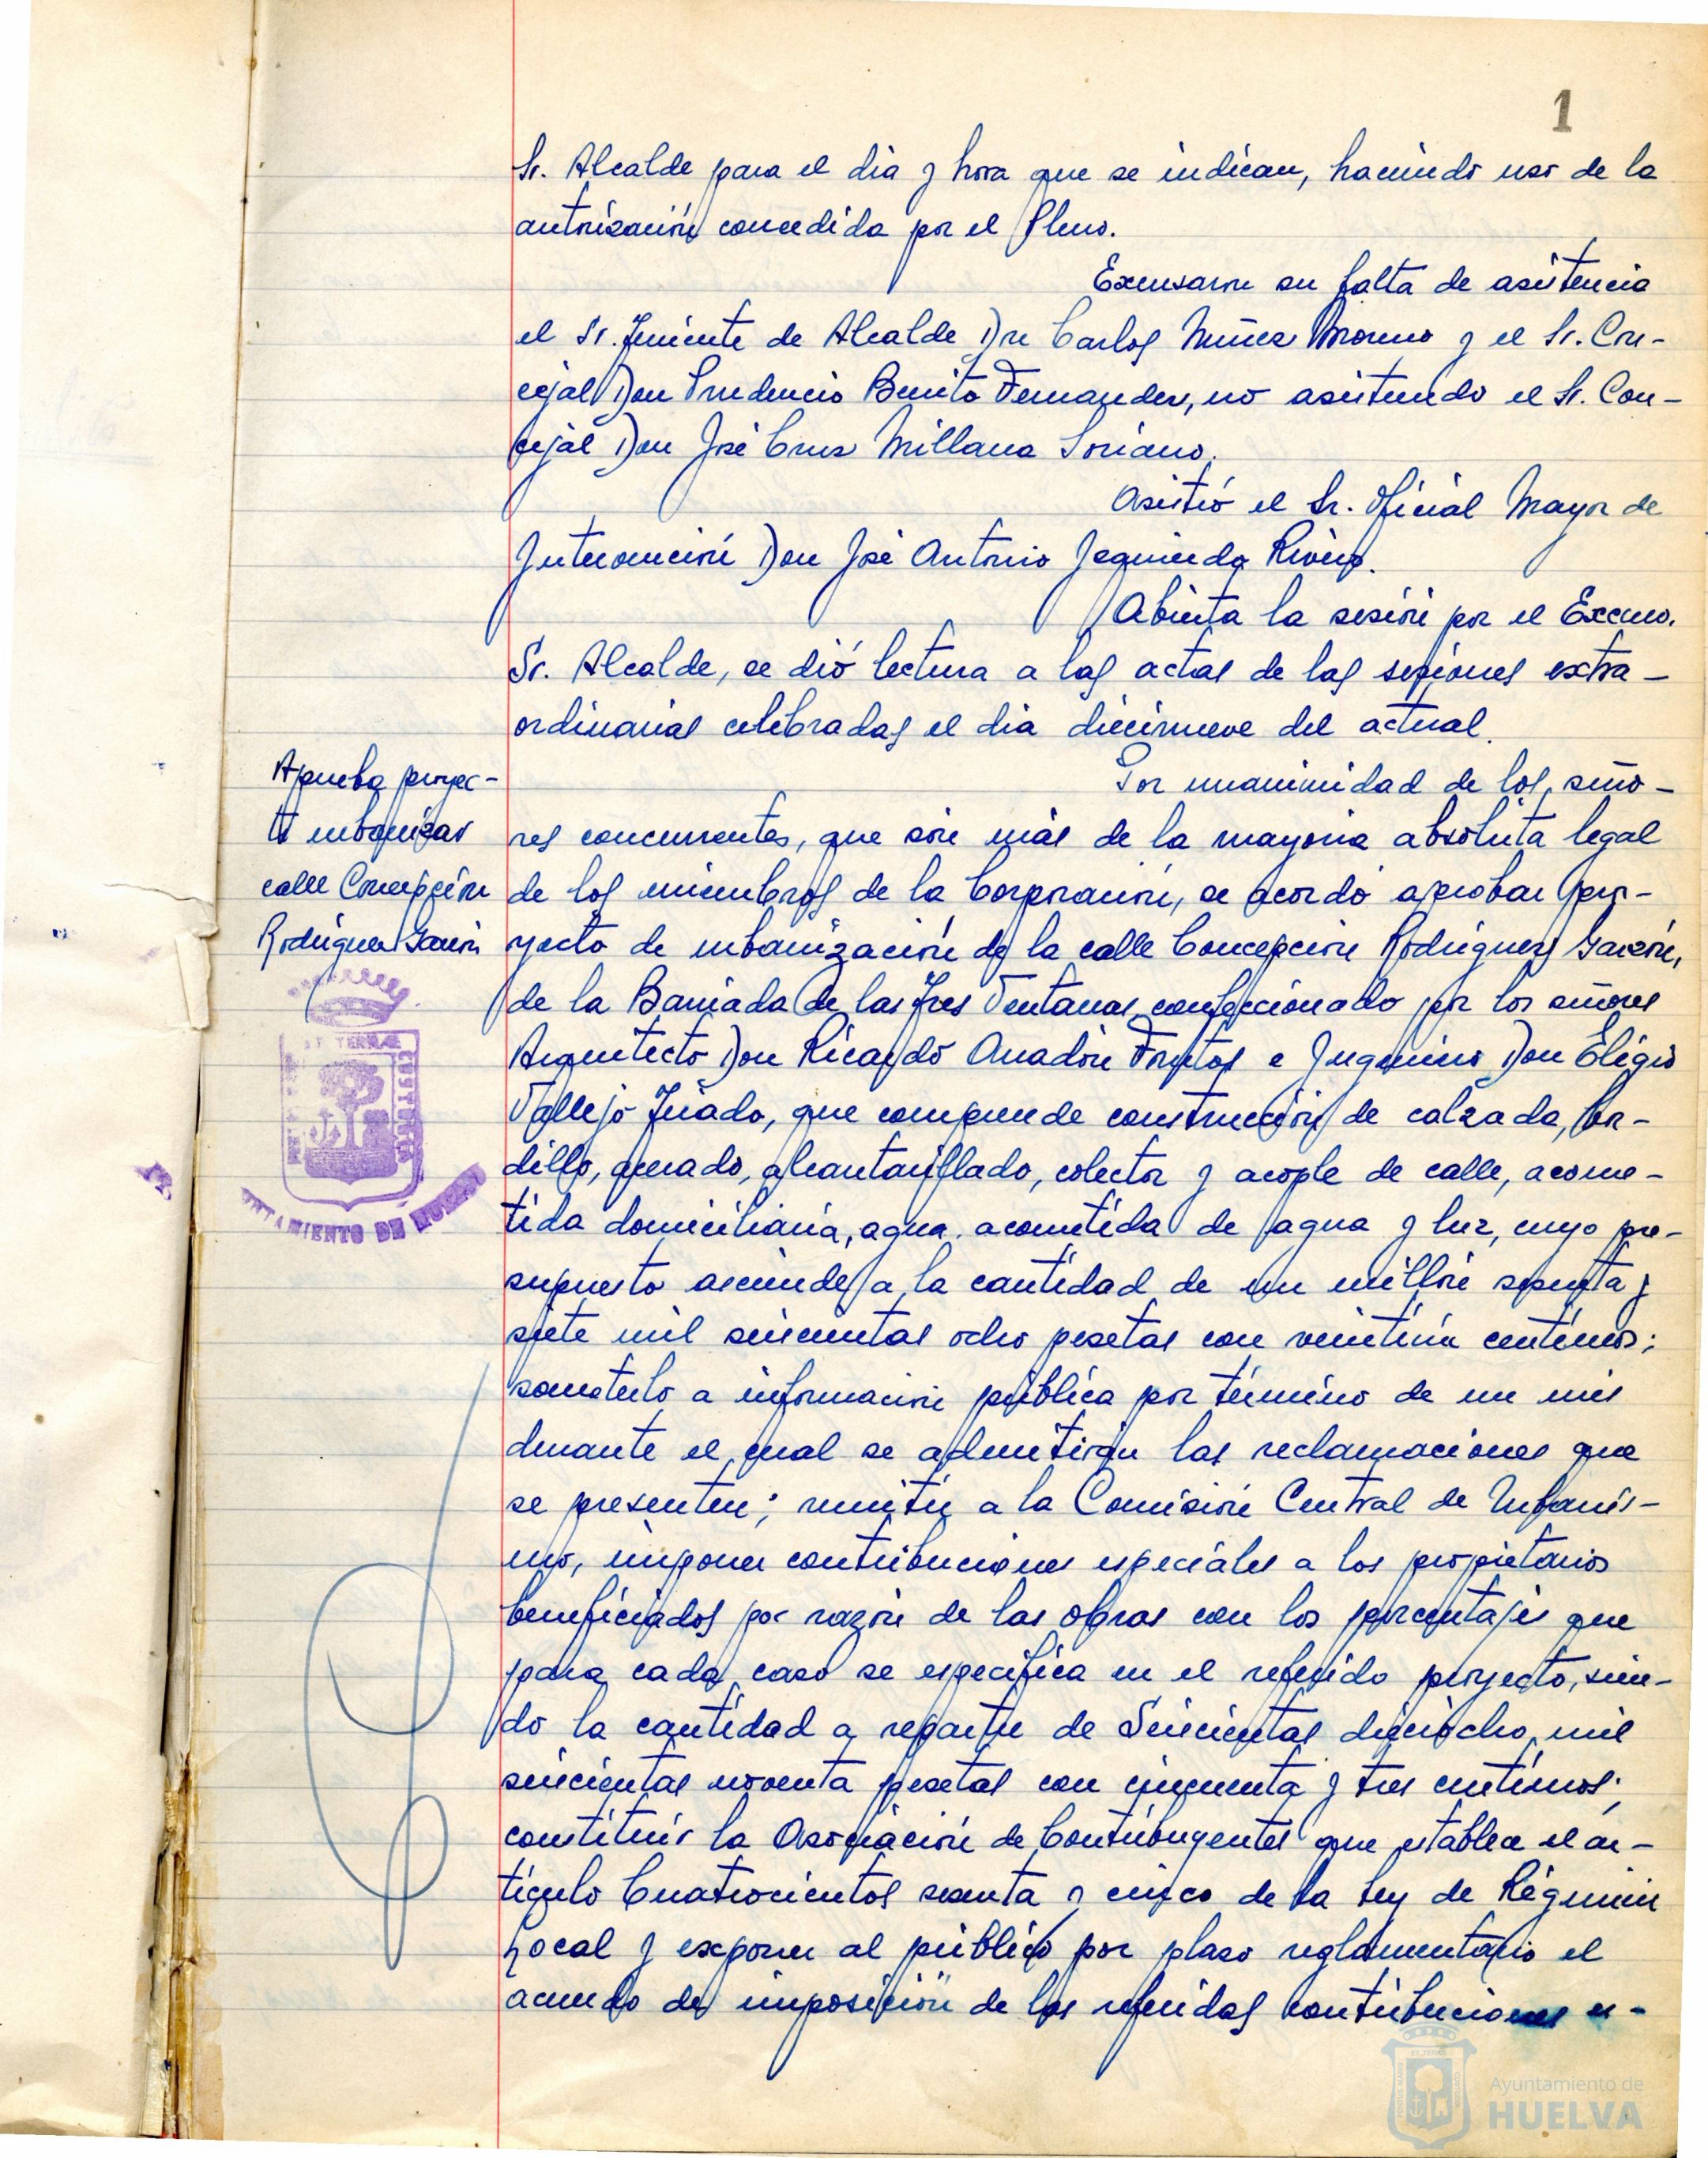 1
Sr. Alcalde para el dia y hora que se indican, haciendo uso de la
autorización concedida por el Pleno.
Excusaron su falta de asistencia
el Sr. Teniente de Alcalde Don Carlos Nuñez Moreno y el Sr. Con-
cejal Don Prudencio Benito Fernandez, no asistiendo el Sr. Con-
cejal Don José Cruz Millana Soriano.
Asistió el Sr. Oficial Mayor de
Intervención Don José Antonio Izquierdo Rivero.
Abierta la sesión por el Excmo.
Sr. Alcalde, se dió lectura a las actas de las sesiones extra-
ordinarias celebradas el dia diecinueve del actual.
Aprueba proyec-
to urbanizar
calle Concepción
Rodriguez Garzón
Por unanimidad de los seño-
res concurrentes, que son más de la mayoria absoluta legal
de los miembros de la Corporación, se acordó aprobar pro-
yecto de urbanización de la calle Concepción Rodriguez Garzón,
de la Barriada de las Tres Ventanas confeccionado por los señores
Arquitecto Don Ricardo Anadón Frutos e Ingeniero Don Eligio
Vallejo Triado, que comprende construcción de calzada, bor-
dillo, acerado, alcantarillado, colector y acople de calle, acome-
tida domiciliaria, agua, acometida de agua y luz, cuyo pre-
supuesto asciende a la cantidad de un millón sesenta y
siete mil seiscientas ocho pesetas con veintiún centimos;
someterlo a información pública por término de un mes
durante el cual se admitirán las reclamaciones que
se presenten; remitir a la Comisión Central de Urbanis-
mo, imponer contribuciones especiales a los propietarios
beneficiados por razón de las obras con los porcentajes que
para cada caso se especifica en el referido proyecto, sien-
do la cantidad a repartir de Seiscientas dieciocho mil
seiscientas noventa pesetas con cincuenta y tres centimos;
constituir la Asociación de Contribuyentes que establece el ar-
tículo Cuatrocientos sesenta y cinco de la Ley de Régimen
Local y exponer al público por plazo reglamentario el
acuerdo de imposición de las referidas contribuciones es-
AYUNTAMIENTO DE HUELVA
Ayuntamiento de
HUELVA